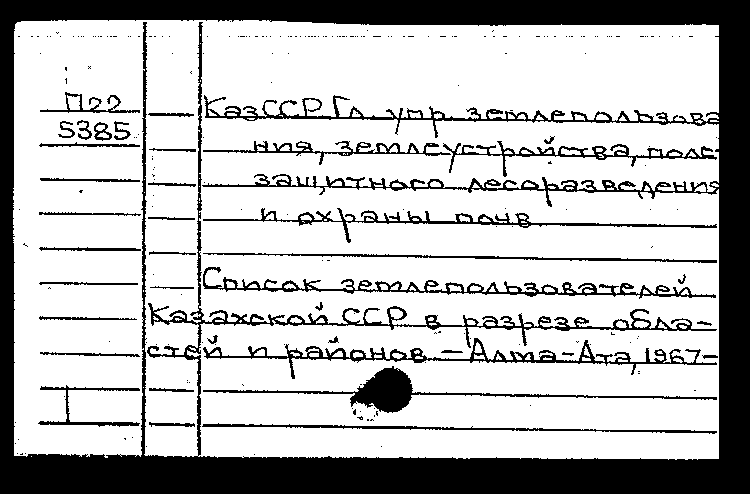 П22
5385
КазССР Гл. упр. землепользова
ния, землеустройства, поле
защитного лесоразведения
и охраны почв
Список землепользователей
Казахской ССР в разрезе обла-
стей и районов - Алма-Ата, 1967-